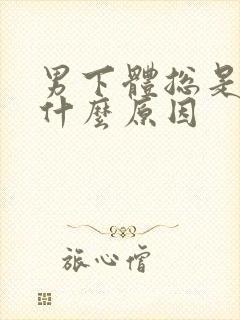 男下體總是
什麼原因
旅心儈